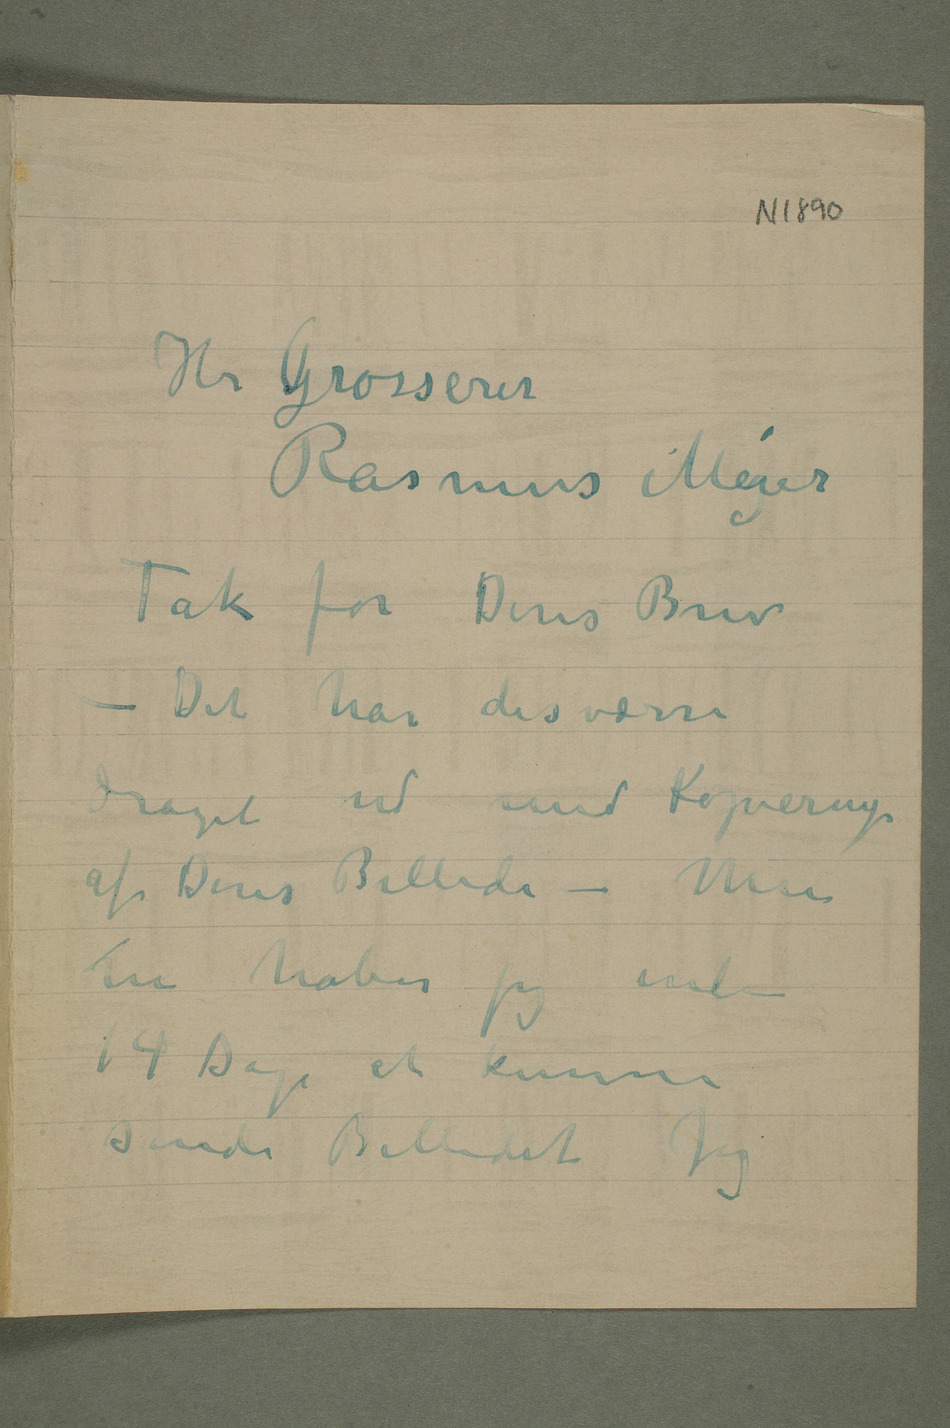 N1890
Hr Grosserer
Rasmus Méyer
Tak for Deres Brev
– Det har desværre
draget ud med Kopierings
af Deres Billede – Men
nu haaber jeg inden
14 Dage at kunne
sende Billedet Jeg